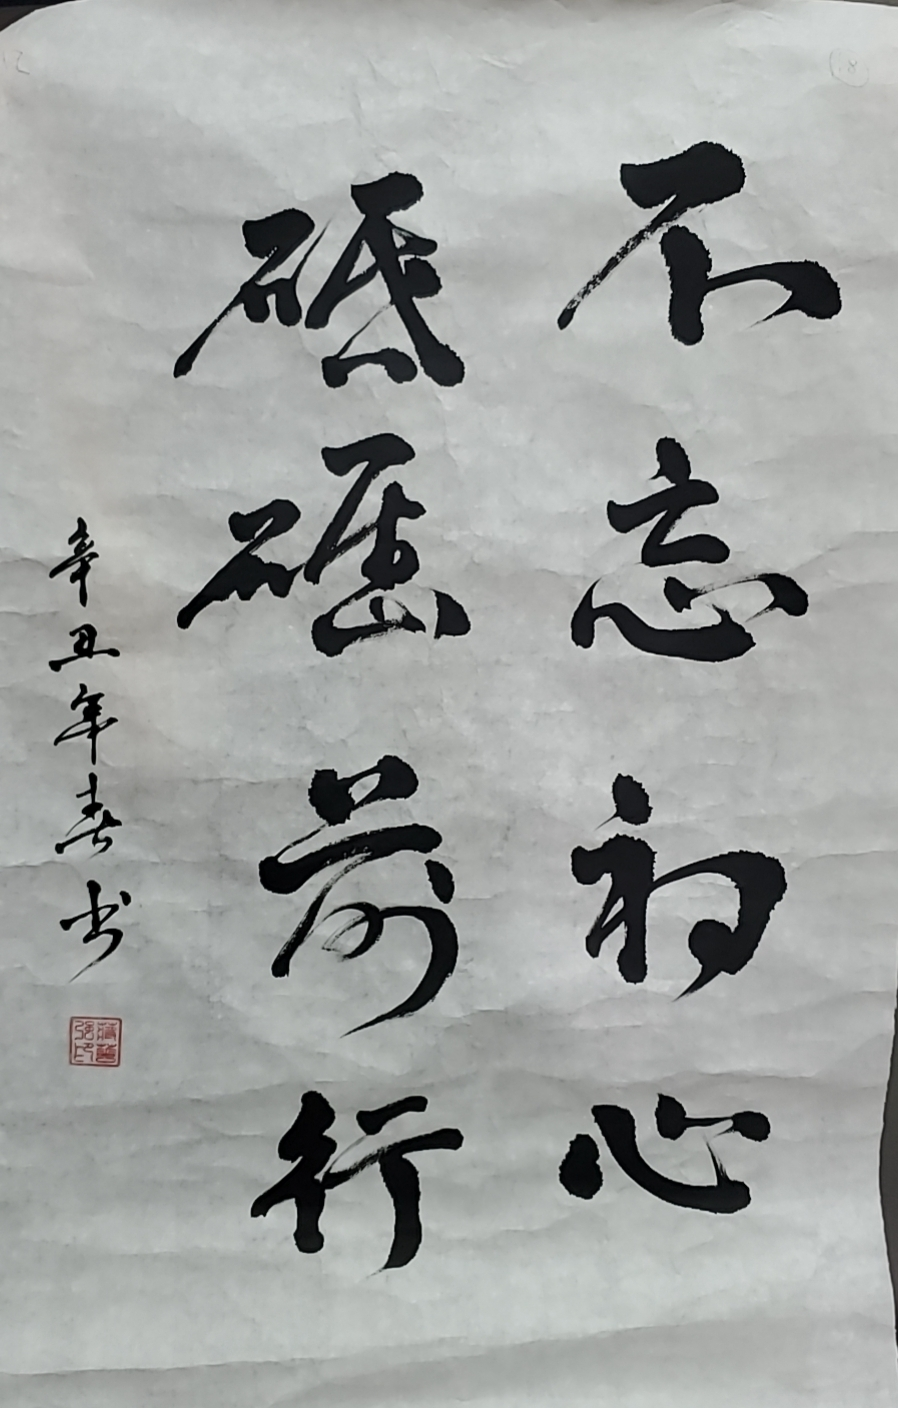 不忘初心
砥砺前行
辛丑年春书